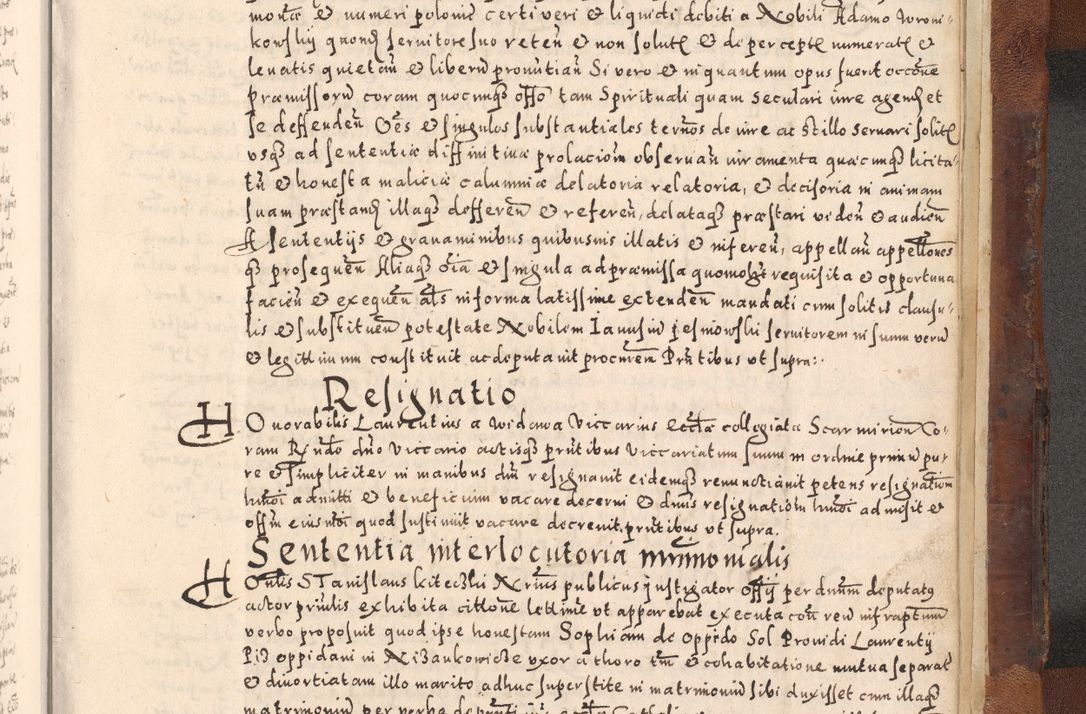 monæ et numeri poloniē certi veri et liquidi debiti a Nobili Adamo Wroni-
kowskij quond servitore suo reteñ et non solutę et de perceptę numeratę et
levatis quietañ et liberū pronūtiañ Si vero et in quantum opus fuerit occōne
præmissorū coram quocunq̨ offō tam Spirituali quam seculari iure agend et
se deffendeñ Oēs et singulos substantiales termōs de iure ac stillo servari solitę
usq̨ ad sententiæ diffinitivæ prolacioñ observañ iuramenta quæcunq̨ licita-
tū et honesta maliciæ calumniæ delatoria relatoria, et decisoria in animam
suam præstand illaq̨ defferen̄ et refereñ, delataq̨ præstari videñ et audieñ
A sententijs et gravaminibus quibusvis illatis et infereñ, appellañ appellōnes
q̨ prosequeñ Aliaq̨ oīa et singula ad præmissa quomolt requisita et opportuna
facieñ et exequeñ als in forma latissime extendeñ mandati cum solitis clausu-
lis et substitueñ potestate Nobilem Ianusiū jesmowski servitorem in suum verū
et legittimum constituit ac deputavit procūrem Prñtibus ut supra:.
Resignatio
HOnorabilis Laurentius a Widawa Viccarius Ecctæ collegiatæ Scarmirien̄ Co-
ram Rndo dno Viccario actisq̨ prñtibus Viccariatum suum in ordine primū pu-
re et simpliciter in manibus dni resignavit eidemq̨ renunctiavit petens resignationem
hmōi admitti et beneficium vacare decerni Et dnus resignationē hmōi admisit et
offm eiusmōi quod sustinuit vacare decrevit prñtibus ut supra.
Sententia interlocutoria mrimonialis
HOnlis STanislaus kiteczki Nrius publicus justigator offij per dnum deputatg
actor priulis exhibita citlone letlinie ut apparebat executa con reū infraptum
verbo proposuit quod ipse honestam Sophiam de oppido Sol Providi Laurentij
Piz oppidani in Nizankowicze uxor a thoro tm et cohabitatione mutua separat
et divortiatam illo marito adhuc superstite in matrimoniū sibi duxisset cum illaq̨
matrimoniū per verba de prñti